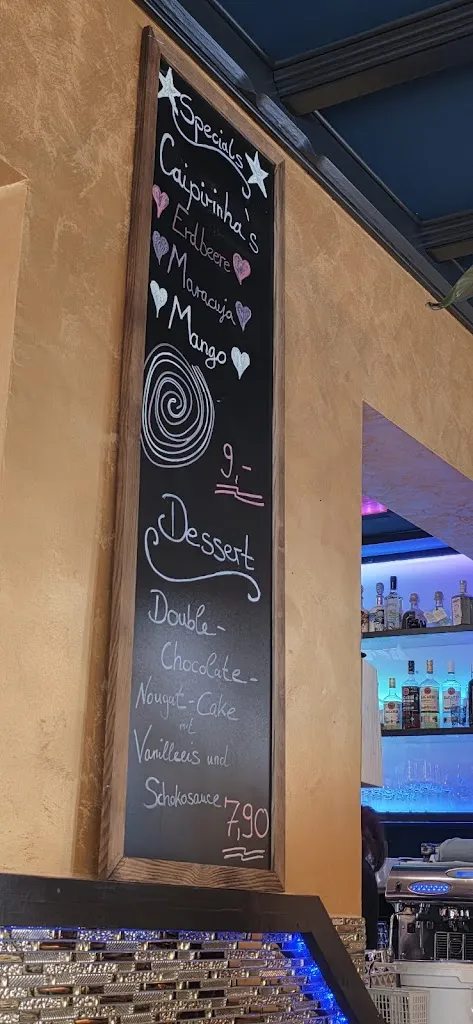 Specials
Caipirinha`s
Erdbeere
Maracuja
Mango
9,-
Dessert
Double-
Chocolate-
Nougat-Cake
mit
Vanilleeis und
Schokosauce 7,90